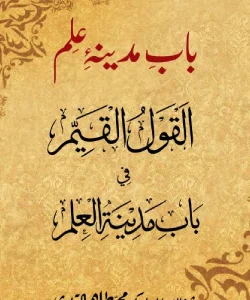 بابِ مدینۂ علم
القَوْلُ القَيِّم
في
بَابِ مَدِينَةِ العِلْم